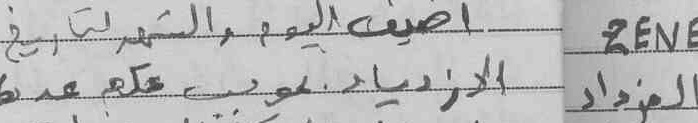 اضيف اليوم والشهر لتاريخ ZENE
الازدياد بموجب حكم عدد المزداد